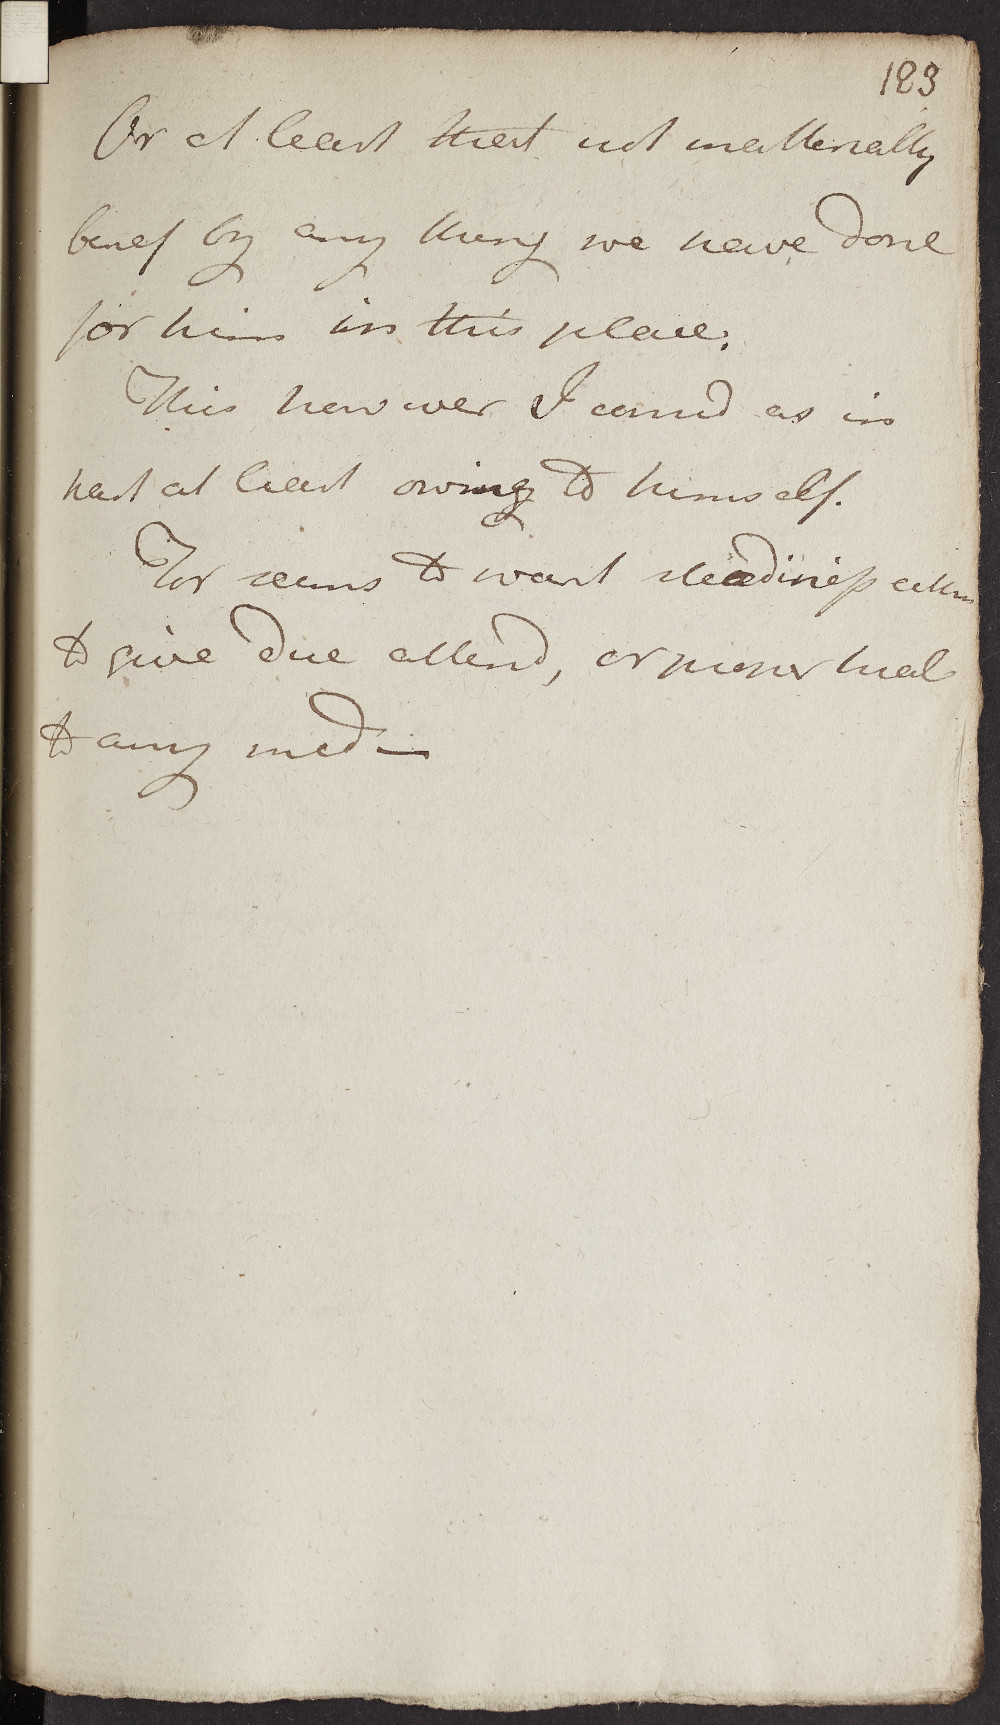 183
Or at least that not matterially
benef by any thing we have done
for him in this place.
This however I consid as in
part at least owing to himself.
For seems to want steadiness either
to give due attend, or proper trial
to any med—